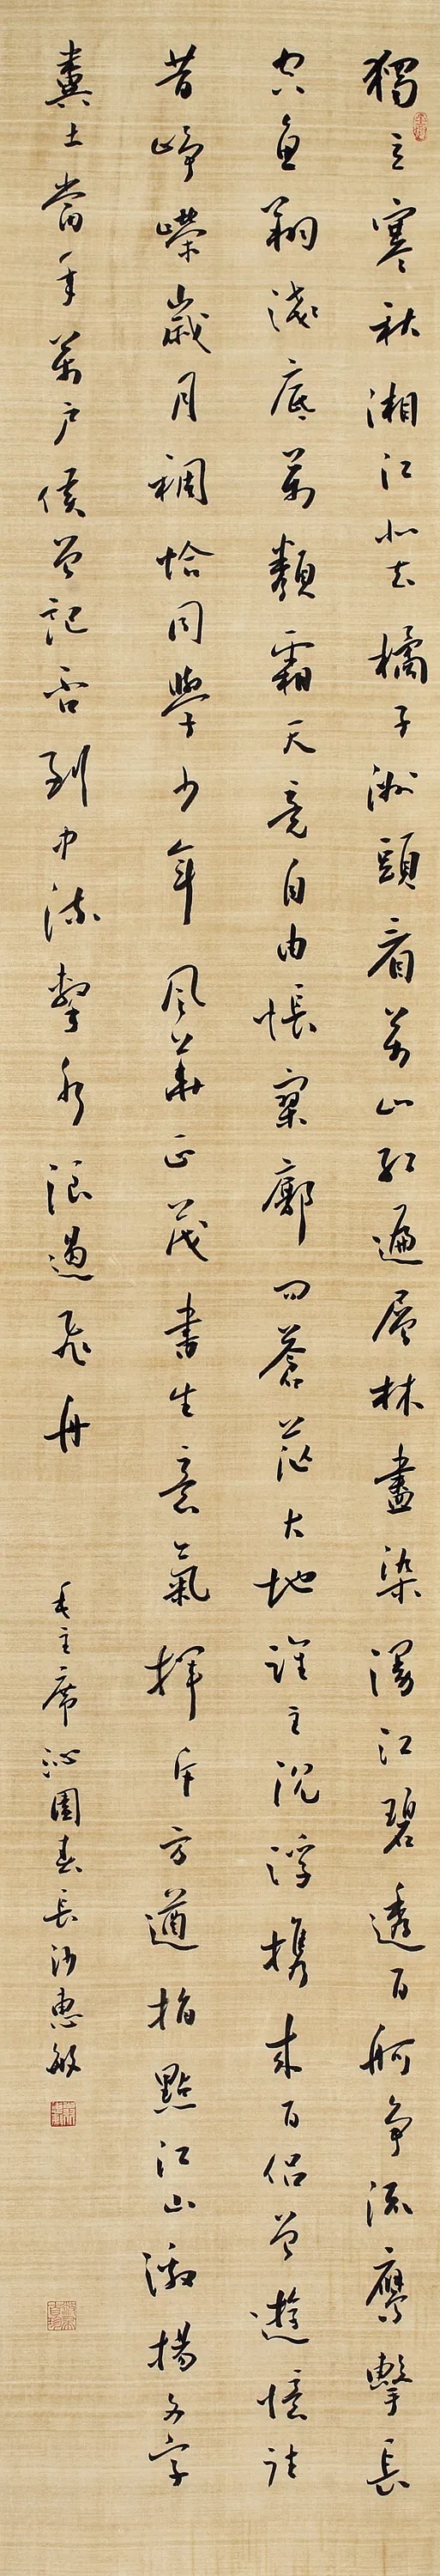 獨立寒秋湘江北去橘子洲頭看萬山紅遍層林盡染漫江碧透百舸爭流鷹擊長
空魚翔淺底萬類霜天竞自由悵寥廓問蒼茫大地誰主沉浮携來百侶曾遊憶往
昔崢嶸歲月稠恰同學少年風華正茂書生意氣揮斥方遒指點江山激揚文字
糞土當年萬戶侯曾記否到中流擊水浪遏飛舟
毛主席沁園春長沙惠敏